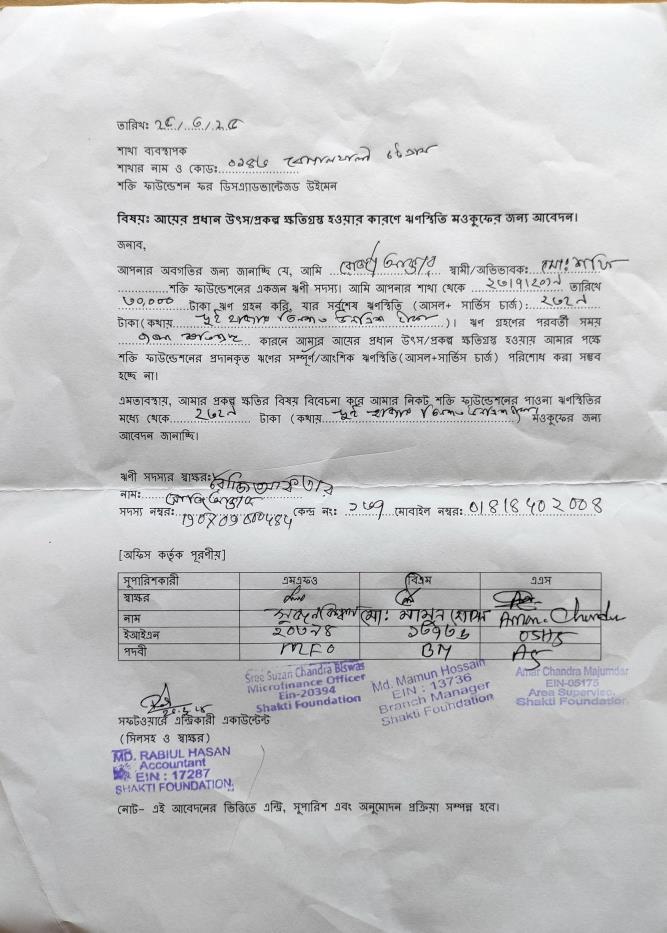 তারিখঃ ২৫/৬/২৫
শাখা ব্যবস্থাপক
শাখার নাম ও কোডঃ
শক্তি ফাউন্ডেশন ফর ডিসএ্যাডভান্টেজড উইমেন
বিষয়ঃ আয়ের প্রধান উৎস/প্রকল্প ক্ষতিগ্রস্ত হওয়ার কারণে ঋণস্থিতি মওকুফের জন্য আবেদন।
জনাব,
আপনার অবগতির জন্য জানাচ্ছি যে, আমি রোজি আক্তার স্বামী/অভিভাবকঃ
শক্তি ফাউন্ডেশনের একজন ঋণী সদস্য। আমি আপনার শাখা থেকে তারিখে
৩০,০০০ টাকা ঋণ গ্রহন করি, যার সর্বশেষ ঋণস্থিতি (আসল+ সার্ভিস চার্জ):
টাকা(কথায় )। ঋণ গ্রহনের পরবর্তী সময়
কারনে আমার আয়ের প্রধান উৎস/প্রকল্প ক্ষতিগ্রস্ত হওয়ায় আমার পক্ষে
শক্তি ফাউন্ডেশনের প্রদানকৃত ঋণের সম্পূর্ণ/আংশিক ঋণস্থিতি(আসল+সার্ভিস চার্জ) পরিশোধ করা সম্ভব
হচ্ছে না।
এমতাবস্থায়, আমার প্রকল্প ক্ষতির বিষয় বিবেচনা করে আমার নিকট শক্তি ফাউন্ডেশনের পাওনা ঋণস্থিতির
মধ্যে থেকে টাকা (কথায় ) মওকুফের জন্য
আবেদন জানাচ্ছি।
ঋণী সদস্যর স্বাক্ষরঃ রোজি আকতার
নামঃ রোজি আক্তার
সদস্য নম্বরঃ কেন্দ্র নংঃ মোবাইল নম্বরঃ 01818402008
[অফিস কর্তৃক পূরণীয়]
সুপারিশকারী এমএফও বিএম এএস
স্বাক্ষর
নাম মো: মামুন হোসেন Amar Chandra
ইআইএন ২০৩৯৪ ১৩৭৩৬
পদবী MFO BM AS
Sree Suzan Chandra Biswas
Microfinance Officer
Ein-20394
Shakti Foundation
Md. Mamun Hossain
EIN : 13736
Branch Manager
Shakti Foundation
Amar Chandra Majumdar
EIN-05175
Area Supervisor
Shakti Foundation
সফটওয়ারে এন্ট্রিকারী একাউন্টেন্ট
(সিলসহ ও স্বাক্ষর)
MD. RABIUL HASAN
Accountant
EIN : 17287
SHAKTI FOUNDATION
নোট- এই আবেদনের ভিত্তিতে এন্ট্রি, সুপারিশ এবং অনুমোদন প্রক্রিয়া সম্পন্ন হবে।